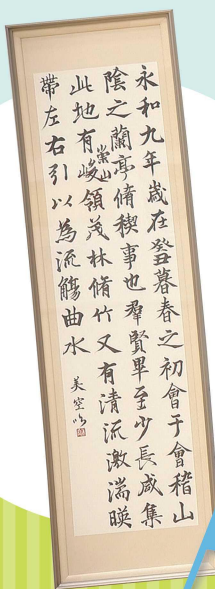 永和九年歳在癸丑暮春之初會于會稽山
陰之蘭亭脩稧事也羣賢畢至少長咸集
此地有崇山峻領茂林脩竹又有清流激湍暎
帶左右引以為流觴曲水